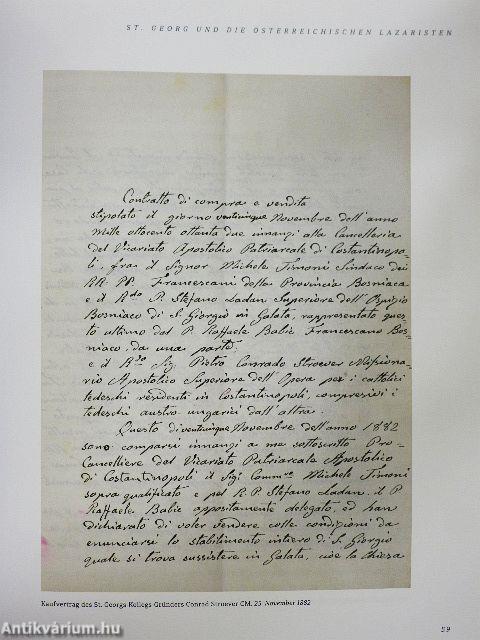 ST. GEORG UND DIE ÖSTERREICHISCHEN LAZARISTEN
Contratto di compra e vendita
stipolato il giorno venticinque Novembre dell'anno
mille ottocento ottanta due innanzi alla Cancelleria
del Vicariato Apostolico Patriarcale di Costantinopo-
li, fra il Signor Michele Timoni Sindaco dei
RR. PP. Francescani della Provincia Bosniaca
e il Rdo P. Stefano Ladan Superiore dell'Ospizio
Bosniaco di S. Giorgio in Galata, rappresentato ques-
to ultimo dal P. Raffaele Balic Francescano Bos-
niaco, da una parte.
e il Rdo Sig. Pietro Conrado Stroever Missiona-
rio Apostolico Superiore dell'Opera per i cattolici
tedeschi residenti in Costantinopoli, compresivi i
tedeschi austro ungarici dall'altra.
Questo dì venticinque Novembre dell'anno 1882
sono comparsi innanzi a me sottoscritto Pro-
Cancelliere del Vicariato Patriarcale Apostolico
di Costantinopoli il Sigr Commre Michele Timoni
sopra qualificato e pel R. P. Stefano Ladan, il P.
Raffaele Balic appositamente delegato, ed han
dichiarato di voler vendere colle condizioni da
enunciarsi lo stabilimento intiero di S. Giorgio
quale si trova sussistere in Galata, cioè la Chiesa
Kaufvertrag des St. Georgs Kollegs Gründers Conrad Stroever CM. 25. November 1882
59
Antikvárium.hu